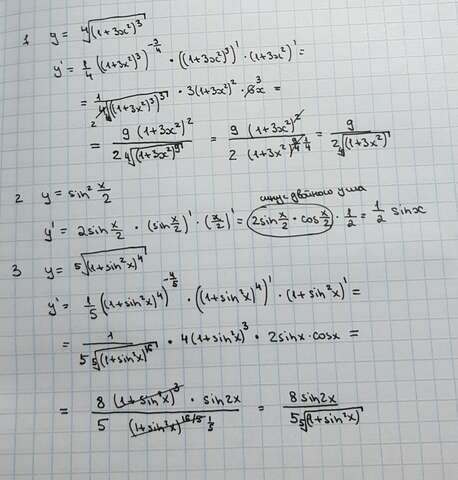 1 y = ∜((1+3x²)³)
y' = 1/4 ((1+3x²)³)^(-3/4) · ((1+3x²)³)' · (1+3x²)' =
= 1/(4 ∜(((1+3x²)³)³)) · 3(1+3x²)² · 6x =
2 3
= 9(1+3x²)²/(2 ∜((1+3x²)⁹)) = 9(1+3x²)²/(2(1+3x²)^(9/4)) = 9/(2 ∜(1+3x²))
2 y = sin² x/2
синус двойного угла
y' = 2sin x/2 · (sin x/2)' · (x/2)' = 2sin x/2 · cos x/2 · 1/2 = 1/2 sinx
3 y = ⁵√((1+sin²x)⁴)
y' = 1/5 ((1+sin²x)⁴)^(-4/5) · ((1+sin²x)⁴)' · (1+sin²x)' =
= 1/(5 ⁵√((1+sin²x)¹⁶)) · 4(1+sin²x)³ · 2sinx · cosx =
= 8(1+sin²x)³ · sin2x/(5(1+sin²x)^(16/5)) = 8sin2x/(5 ⁵√(1+sin²x))